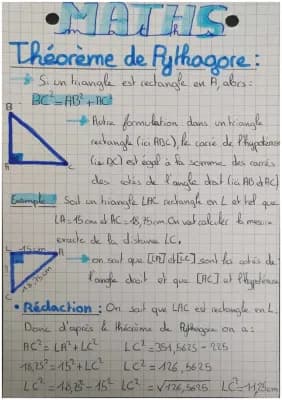 MATHS
Théorème de Pythagore :
Si un triangle est rectangle en A, alors :
BC² = AB² + AC²
B
Autre formulation dans un triangle
rectangle (ici ABC), le carré de l'hypoténuse
(ici BC) est égal à la somme des carrés
A C
des côtés de l'angle droit (ici AB et AC)
Exemple Soit un triangle LAC rectangle en L et tel que
LA = 15 cm et AC = 18,75 cm. On veut calculer la mesure
exacte de la distance LC.
L 15cm A
on sait que [LA] et [LC] sont les côtés de
18,75cm
l'angle droit et que [AC] et l'hypoténuse
C
• Rédaction : On sait que LAC est rectangle en L.
Donc d'après le théorème de Pythagore on a :
AC² = LA² + LC² LC² = 351,5625 - 225
18,75² = 15² + LC² LC² = 126,5625
LC² = 18,75² - 15² LC = √126,5625 LC = 11,25cm